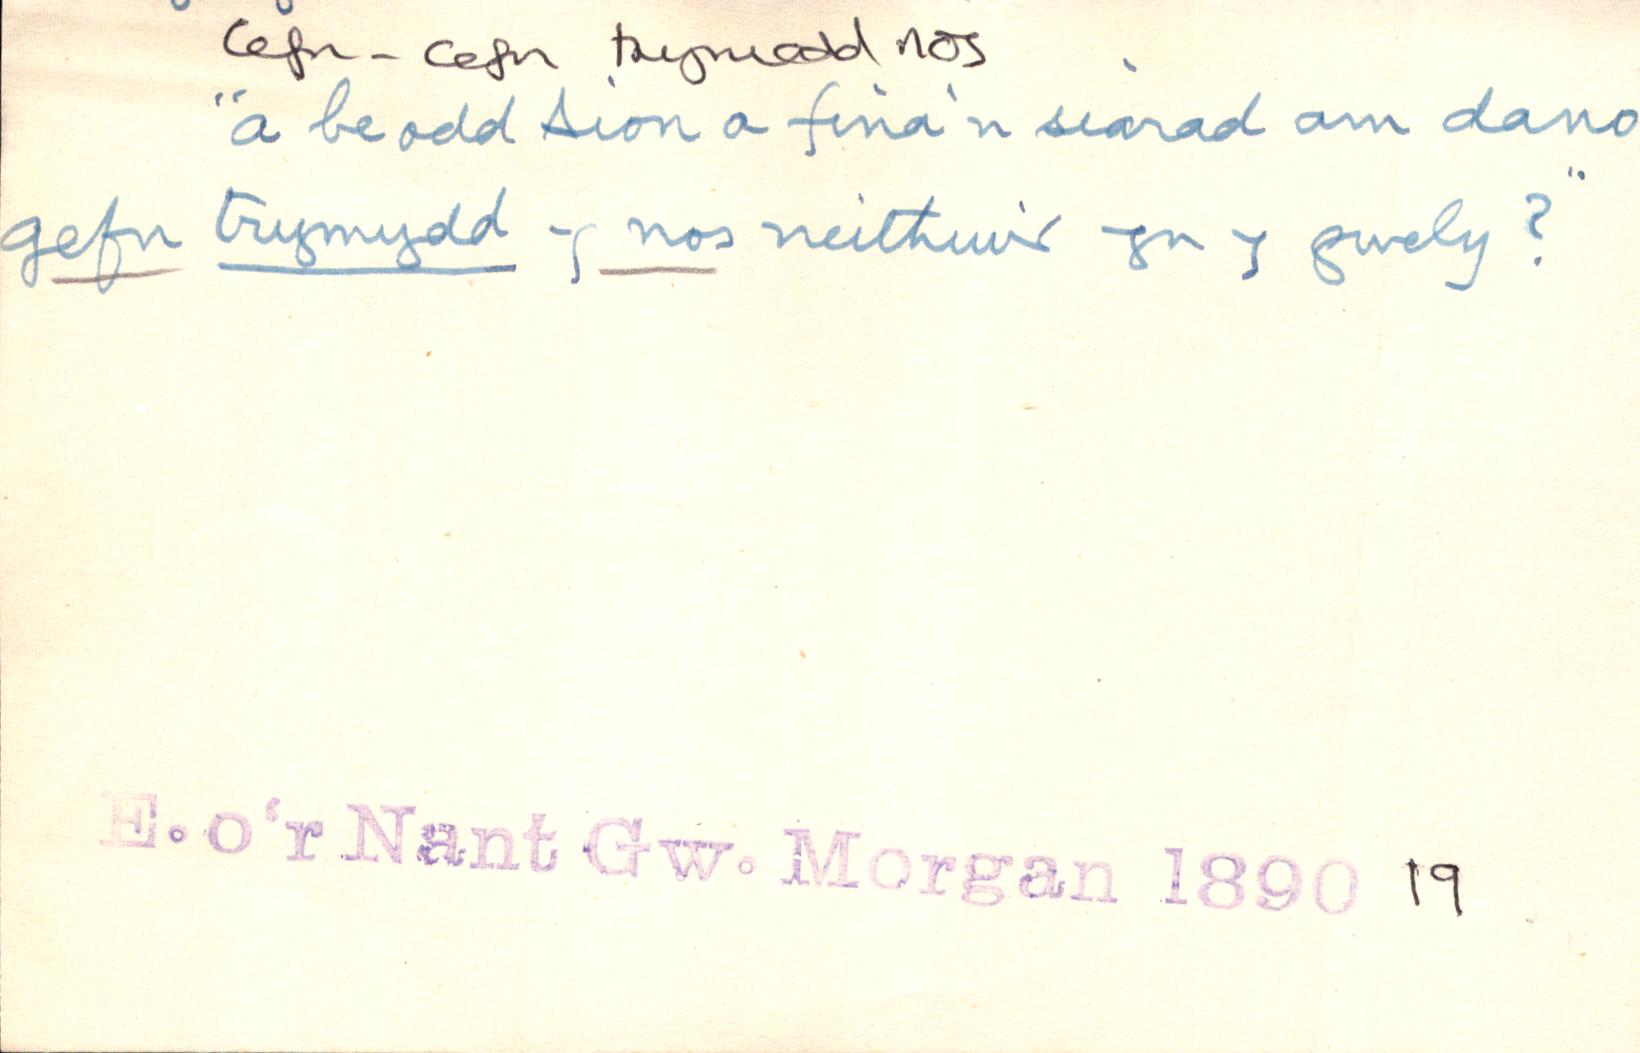 Cefn - cefn trymedd nos
"a be odd Sion a fina'n siarad am dano
gefn trymydd y nos neithiwir yn y gwely?"
E. o'r Nant Gw. Morgan 1890 19